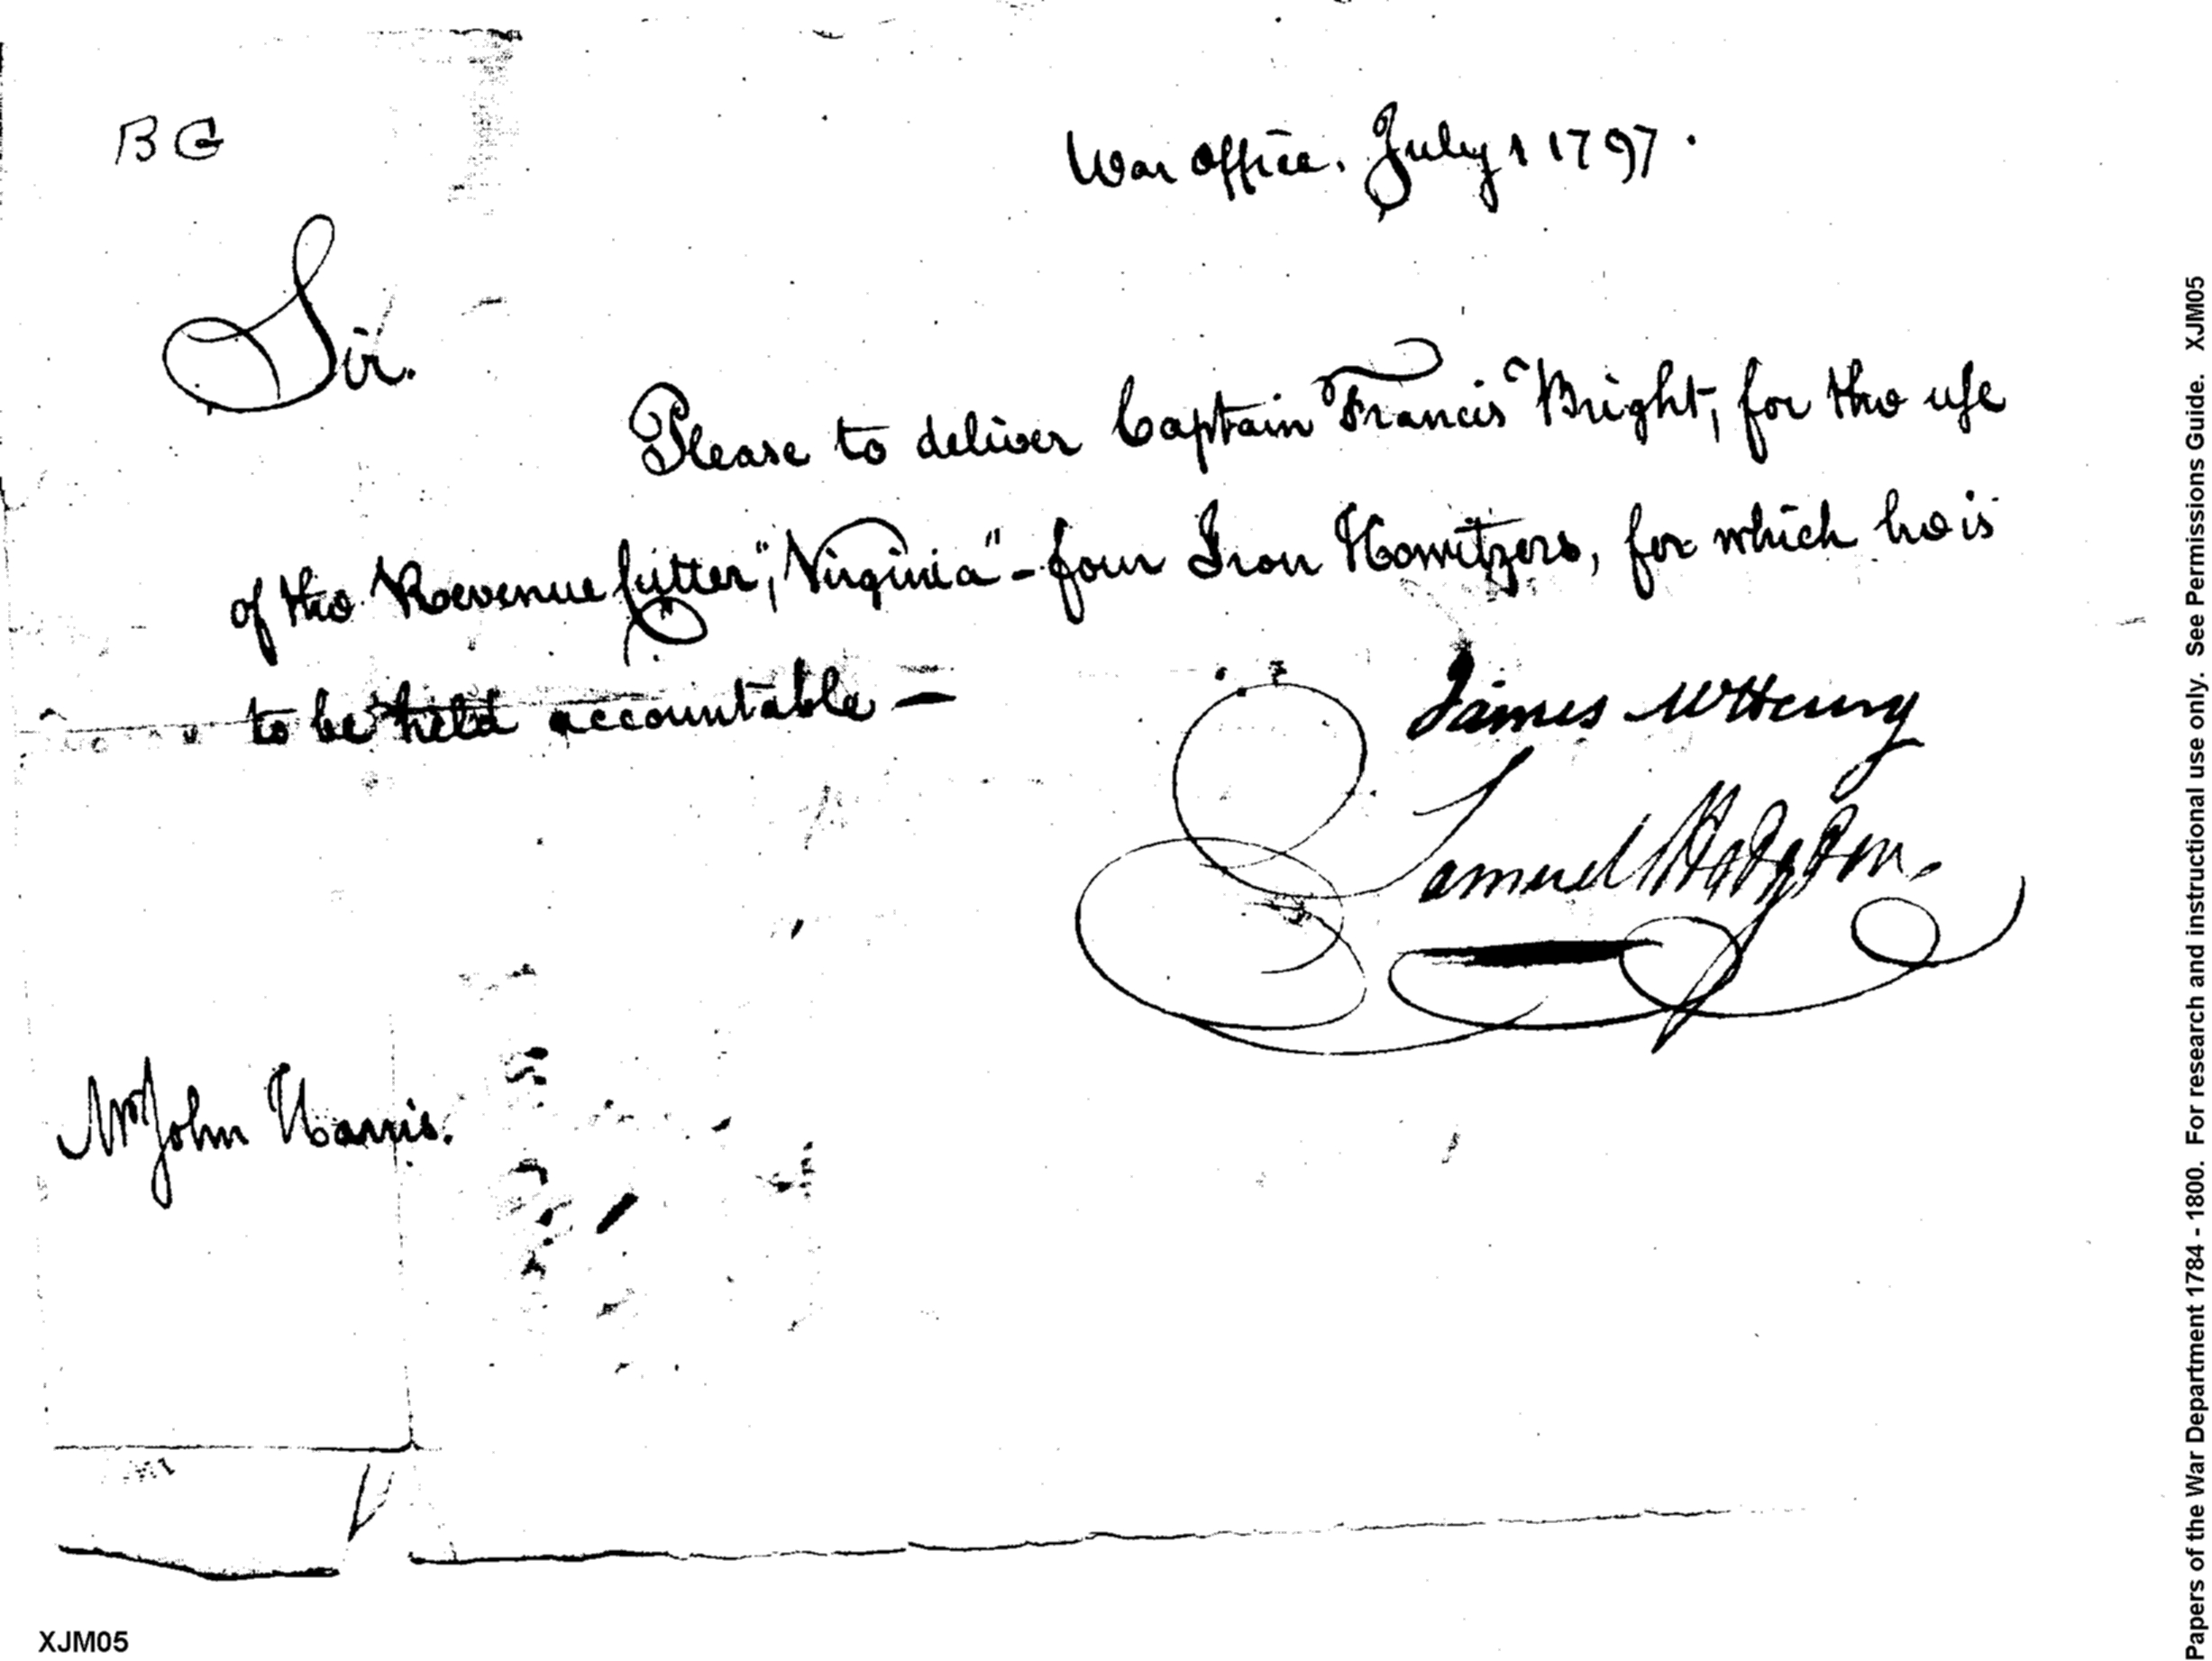 BG
War office. July 1 1797.
Sir.
Please to deliver Captain Francis Bright, for the use
of the Revenue Cutter, "Virginia" - four Iron Howitzers, for which he is
to be held accountable —
James McHenry
Samuel Hodgdon.
Mr John Harris.
XJM05
Papers of the War Department 1784 - 1800. For research and instructional use only. See Permissions Guide. XJM05